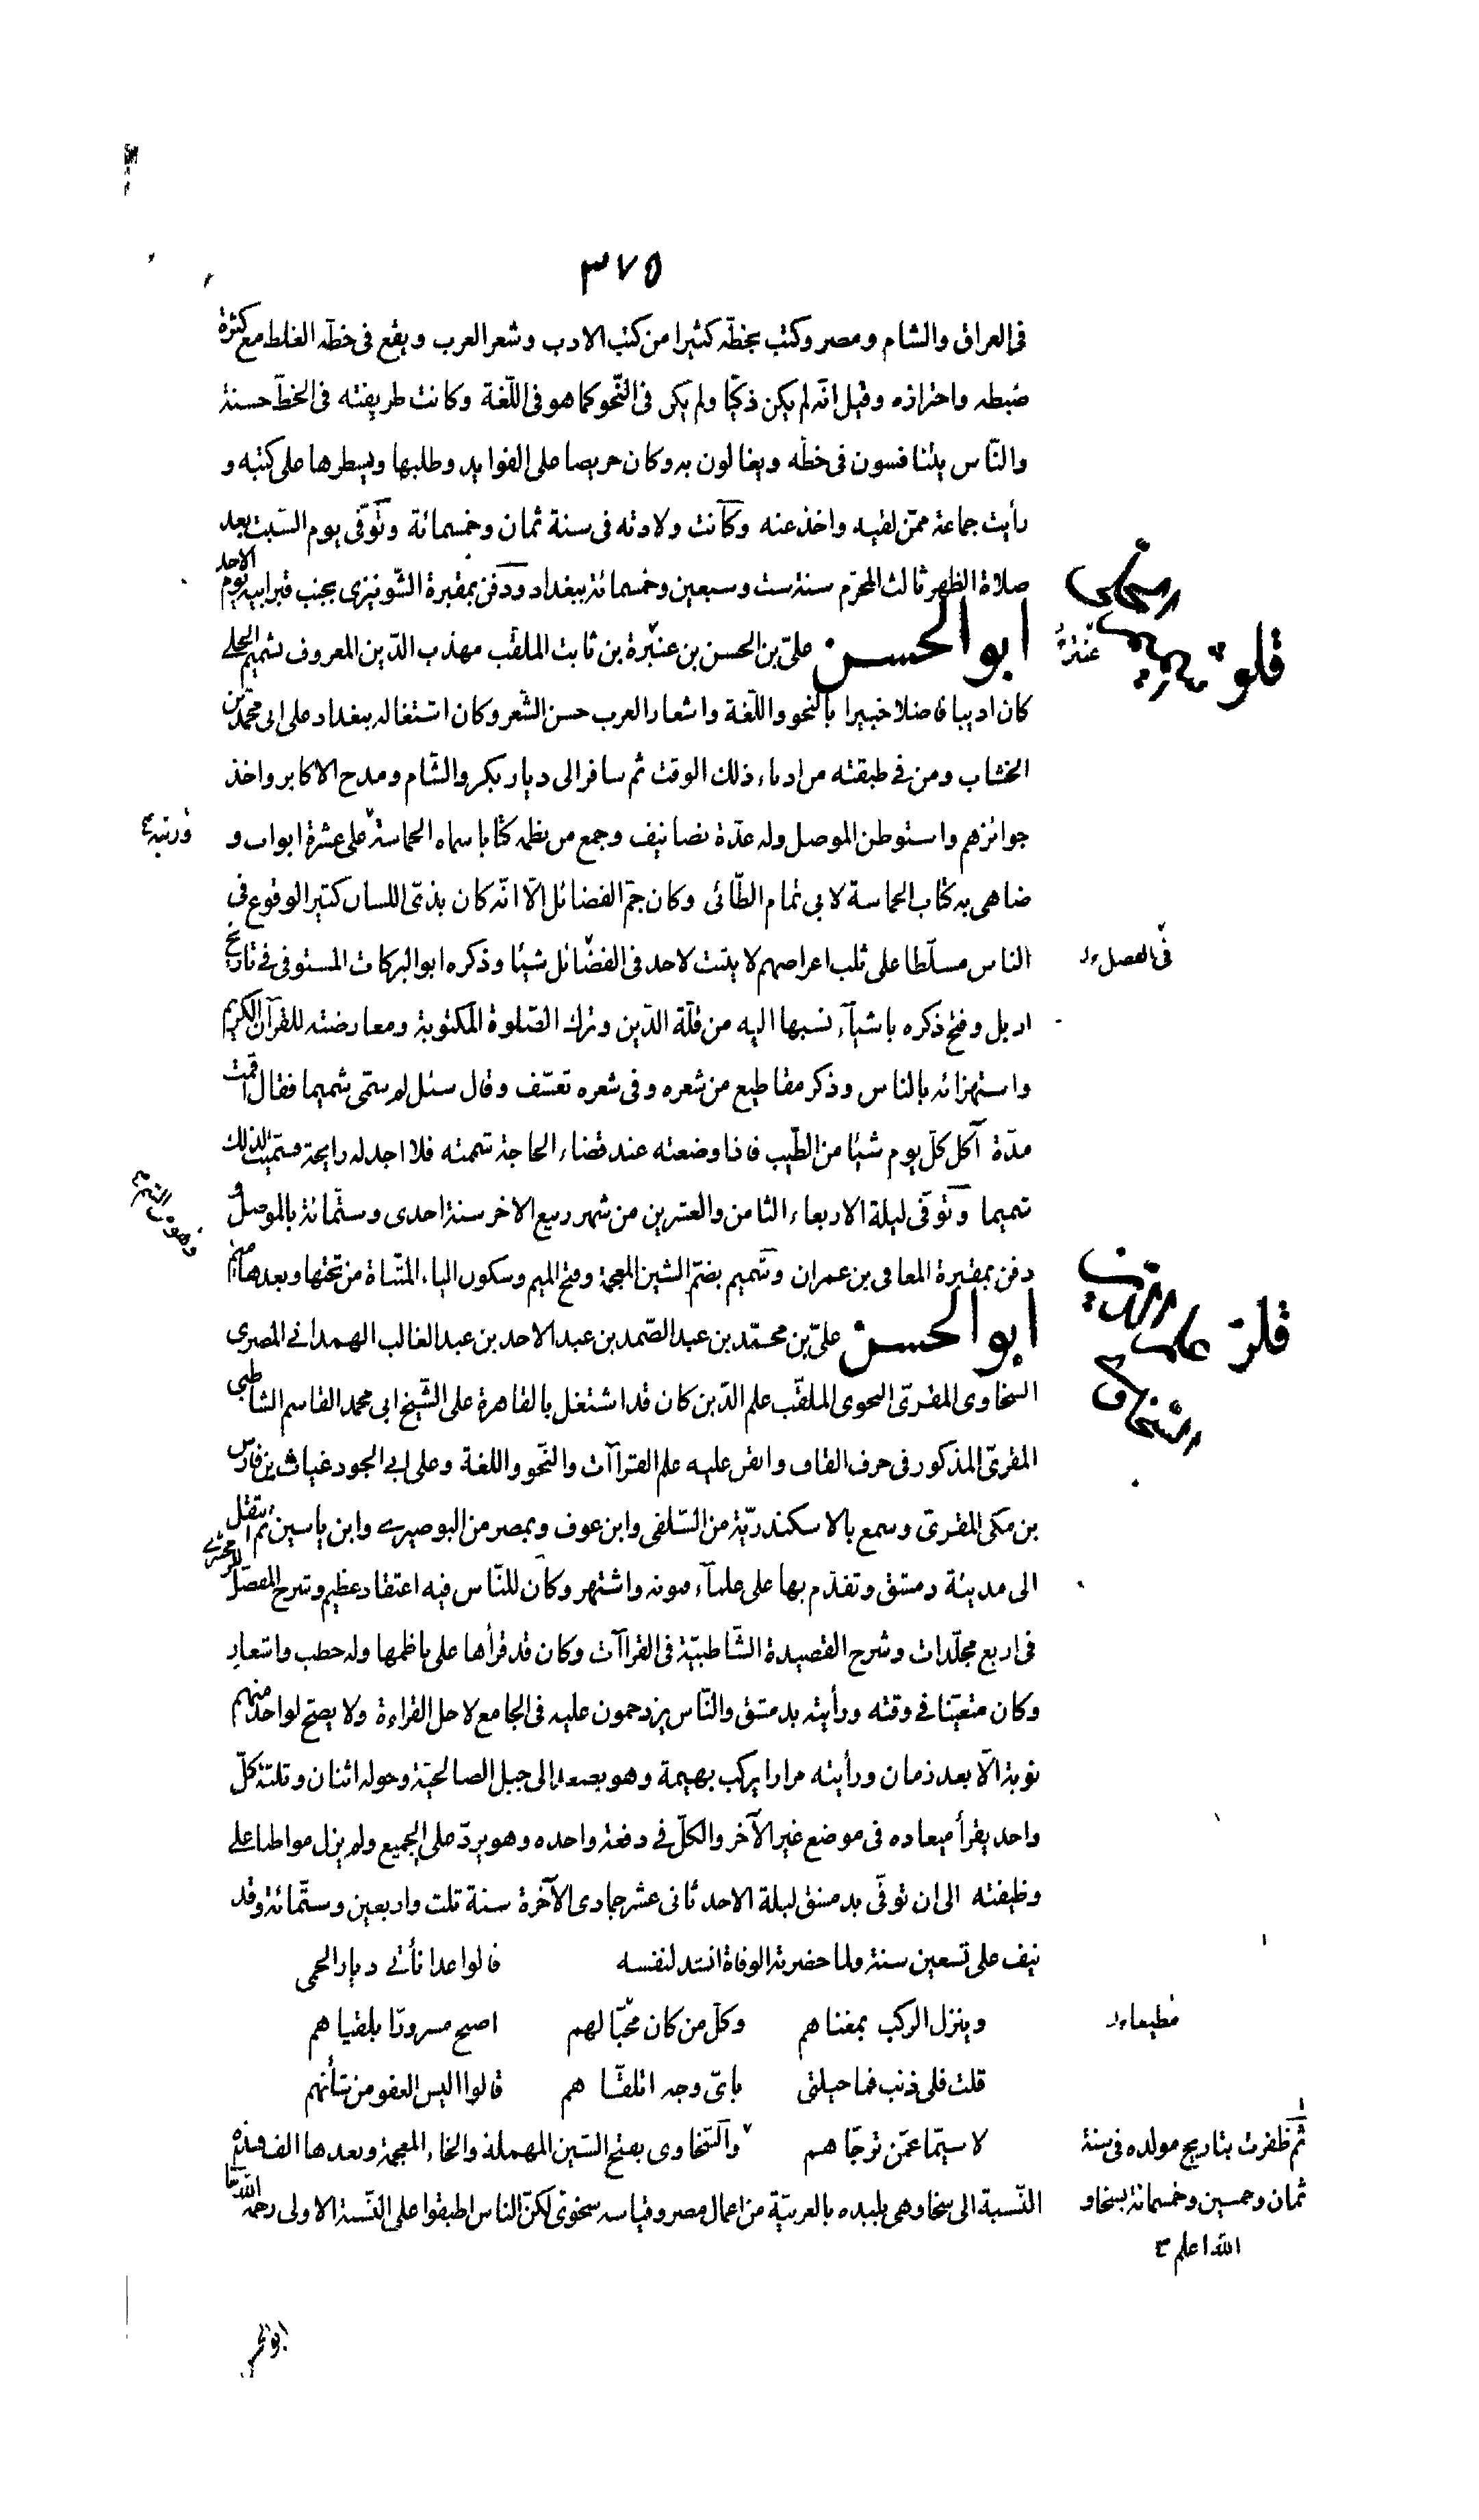 ٣٧٥
فى العراق والشام ومصر وكتب بخطّه كثيرا من كتب الادب وشعر العرب ويقع فى خطّه الغلط مع كثرة
ضبطه واحترازه وقيل انّه لم يكن ذكيّا ولم يكن فى النّحو كما هو فى اللّغة وكانت طريقته فى الخطّ حسنة
والنّاس يتنافسون فى خطّه ويغالون به وكان حريصا على الفوايد وطلبها ويسطرها على كتبه و
رأيت جماعة ممّن لقيه واخذ عنه وكانت ولادته فى سنة ثمان وخمسمائة وتوفّى يوم السّبت بعد
صلاة الظهر ثالث المحرّم سنة ست وسبعين وخمسمائة ببغداد ودفن بمقبرة الشّونيزى بجنب قبر ابيه يوم الاحد
ابو الحسن علىّ بن الحسن بن عنبرة بن ثابت الملقّب مهذب الدّين المعروف بشميم الحلى
عنترة
كان اديبا فاضلا خبيرا بالنحو واللّغة واشعار العرب حسن الشّعر وكان اشتغاله ببغداد على ابى محمّد بن
الخشاب ومن فى طبقته من ادباء ذلك الوقت ثم سافر الى ديار بكر والشّام ومدح الاكابر واخذ
جوائزهم واستوطن الموصل وله عدّة تصانيف وجمع من نظمه كتابا سماه الحماسة على عشرة ابواب و
ورتبه
ضاهى به كتاب الحماسة لابى تمام الطّائى وكان جمّ الفضائل الّا انّه كان بذىّ اللسان كثير الوقوع فى
الناس مسلّطا على ثلب اعراضهم لا يثبت لاحد فى الفضائل شيئا وذكره ابو البركات المستوفى فى تاريخ
فى الفضل
اربل وفتح ذكره باشيآء نسبها اليه من قلّة الدّين وترك الصّلوة المكتوبة ومعارضته للقرآن الكريم
واستهزائه بالناس وذكر مقاطيع من شعره وفى شعره تعسّف وقال سئل لم سمّى شميما فقال اقمت
مدّة آكل كلّ يوم شيئا من الطّيب فاذا وضعته عند قضاء الحاجة شممته فلا اجد له رايحة فسمّيت لذلك
شميما وتوفّى ليلة الاربعاء الثامن والعشرين من شهر ربيع الاخر سنة احدى وستّمائة بالموصل و
دفن بمقبرة المعافى بن عمران وشميم بضمّ الشين المعجمة وفتح الميم وسكون الياء المثنّاة من تحتها وبعدها ميم
ابو الحسن علىّ بن محمّد بن عبد الصّمد بن عبد الاحد بن عبد الغالب الهمدانى المصرى
السخاوى المقرىّ النحوى الملقّب علم الدّين كان قد اشتغل بالقاهرة على الشّيخ ابى محمد القاسم الشاطبى
المقرىّ المذكور فى حرف القاف واتقن عليه علم القراآت والنّحو واللغة وعلى ابى الجود غياث بن فارس
بن مكى المقرىّ وسمع بالاسكندريّة من السّلفى وابن عوف وبمصر من البوصيرى وابن ياسين ثم انتقل
الى مدينة دمشق وتقدّم بها على علمآء فنونه واشتهر وكان للنّاس فيه اعتقاد عظيم وشرح المفصّل للزمخشرى
فى اربع مجلّدات وشرح القصيدة الشّاطبيّة فى القراآت وكان قد قرأها على ناظمها وله خطب واشعار
وكان متعيّنا فى وقته ورأيته بدمشق والنّاس يزدحمون عليه فى الجامع لاجل القراءة ولا يصحّ لواحد منهم
نوبة الّا بعد زمان ورأيته مرارا يركب بهيمة وهو يصعد الى جبل الصالحيّة وحوله اثنان وثلثة كلّ
واحد يقرأ ميعاده فى موضع غير الآخر والكلّ فى دفعة واحده وهو يردّ على الجميع ولم يزل مواظبا على
وظيفته الى ان توفّى بدمشق ليلة الاحد ثانى عشر جمادى الآخرة سنة ثلث واربعين وستّمائة وقد
نيف على تسعين سنة ولما حضرته الوفاة انشد لنفسه قالوا غدا نأتى ديار الحمى
وينزل الركب بمغناهم وكلّ من كان محبّا لهم اصبح مسرورا بلقياهم
مطيعا
قلت فلى ذنب فما حيلتى باىّ وجه اتلقّاهم قالوا اليس العفو من شأنهم
لا سيّما عمّن ترجّاهم والسّخاوى بفتح السّين المهملة والخاء المعجمة وبعدها الف هذه
النّسبة الى سخا وهى بليده بالغربيّة من اعمال مصر وقياسه سخوىّ لكنّ الناس اطبقوا على النّسبة الاولى رحمه الله تعا
ثم ظفرت بتاريخ مولده فى سنة
ثمان وخمسين وخمسمائة بسخا و
الله اعلم